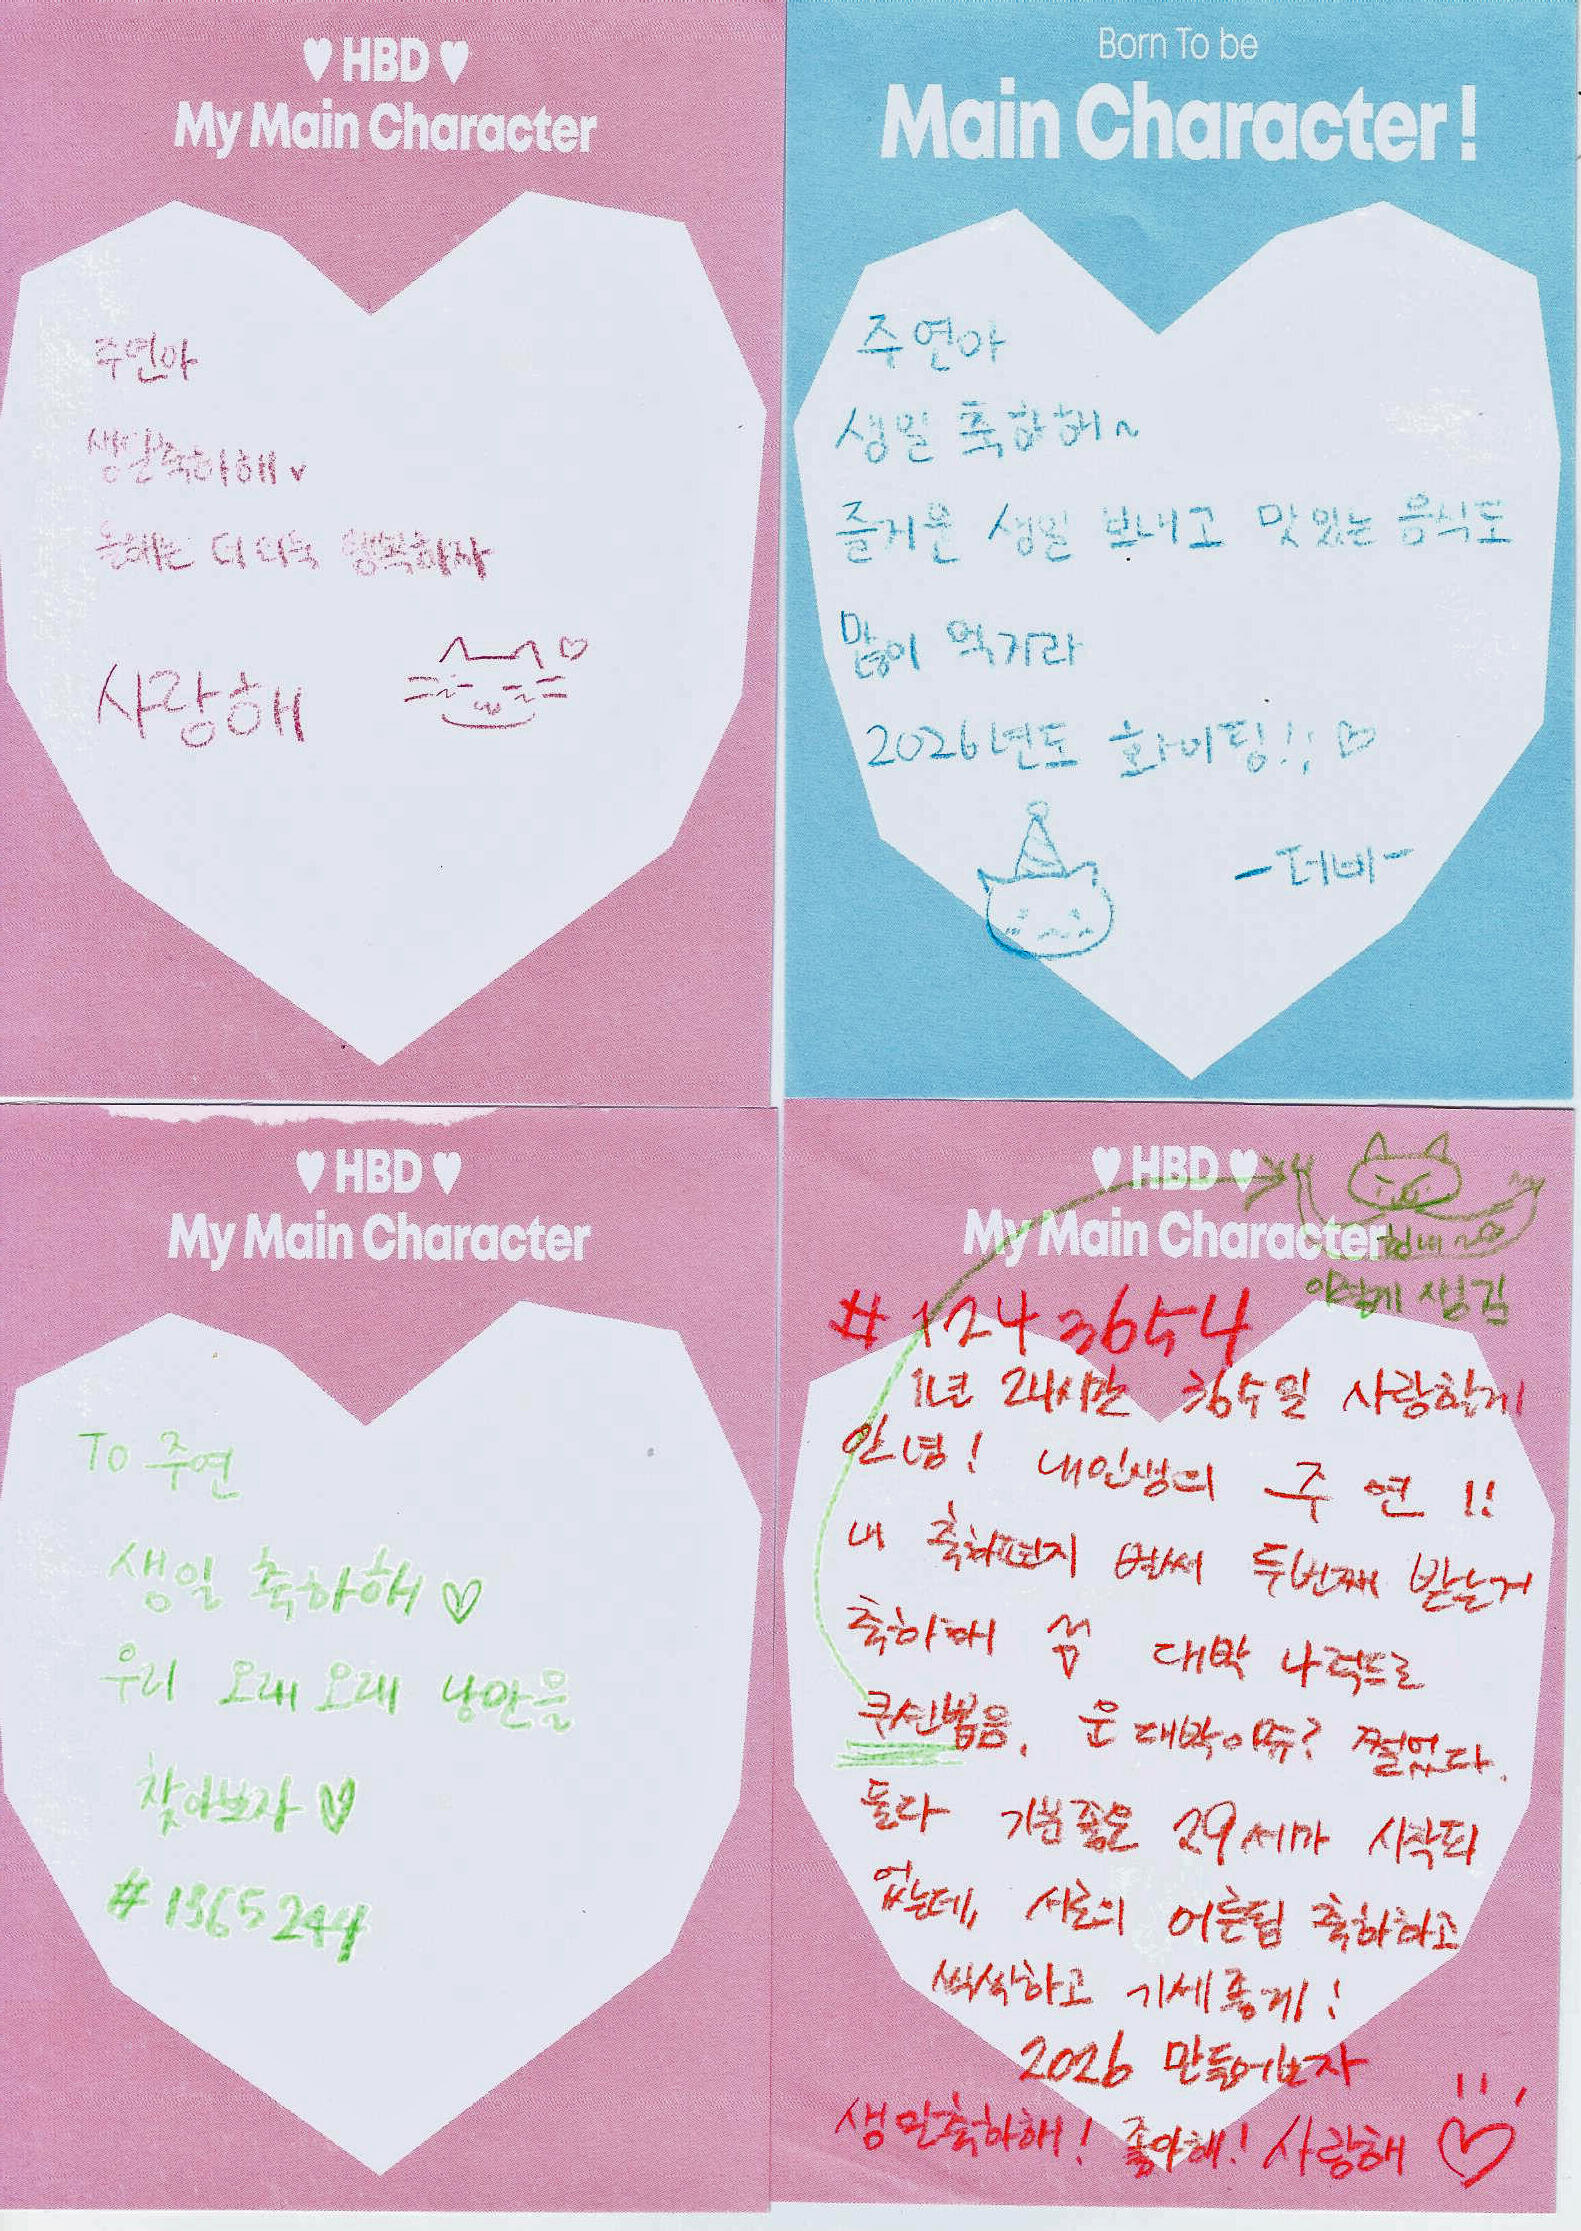 ♥ HBD ♥
My Main Character
주연아
생일축하해♥
올해는 더 더욱 행복하자
사랑해 ♡
Born To be
Main Character!
주연아
생일 축하해~
즐거운 생일 보내고 맛있는 음식도
많이 먹거라
2026년도 화이팅!! ♡
-더비-
♥ HBD ♥
My Main Character
To 주연
생일 축하해♡
우리 오래오래 낭만을
찾아보자♡
#1365244
♥ HBD ♥
My Main Character
힘내~
이렇게 생김
#1243654
1년 24시간 365일 사랑할게
안녕! 내인생의 주연!!
내 축하편지 벌써 두번째 받는거
축하해 대박 나럭뜨로
쿠션뽑음. 운 대박이쥬? 쩔었다.
둘다 기분좋은 29세가 시작되
었는데, 서로의 어른됨 축하하고
씩씩하고 기세좋게!
2026 만들어보자
생일축하해! 좋아해! 사랑해 ♡